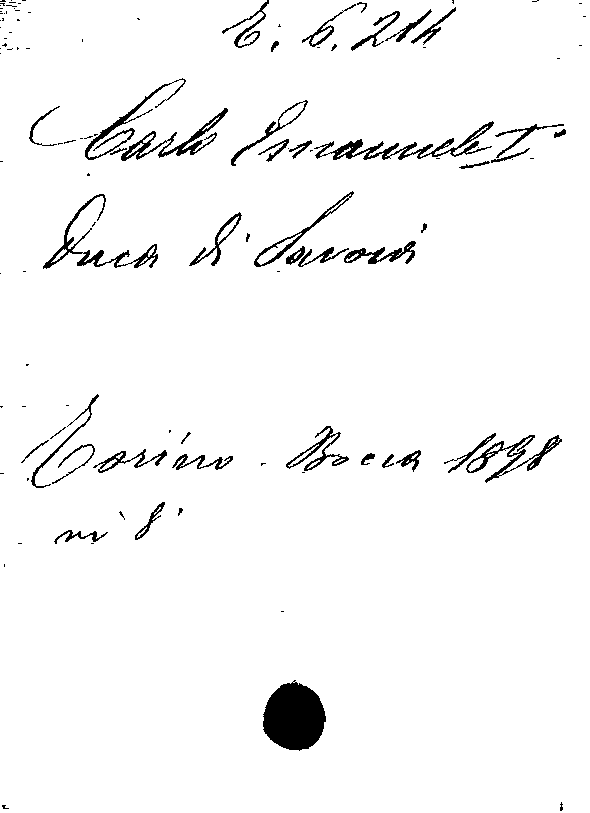 E. 6. 214
Carlo Emanuele I°
Duca di Savoia
Torino. Bocca 1898
in 8°